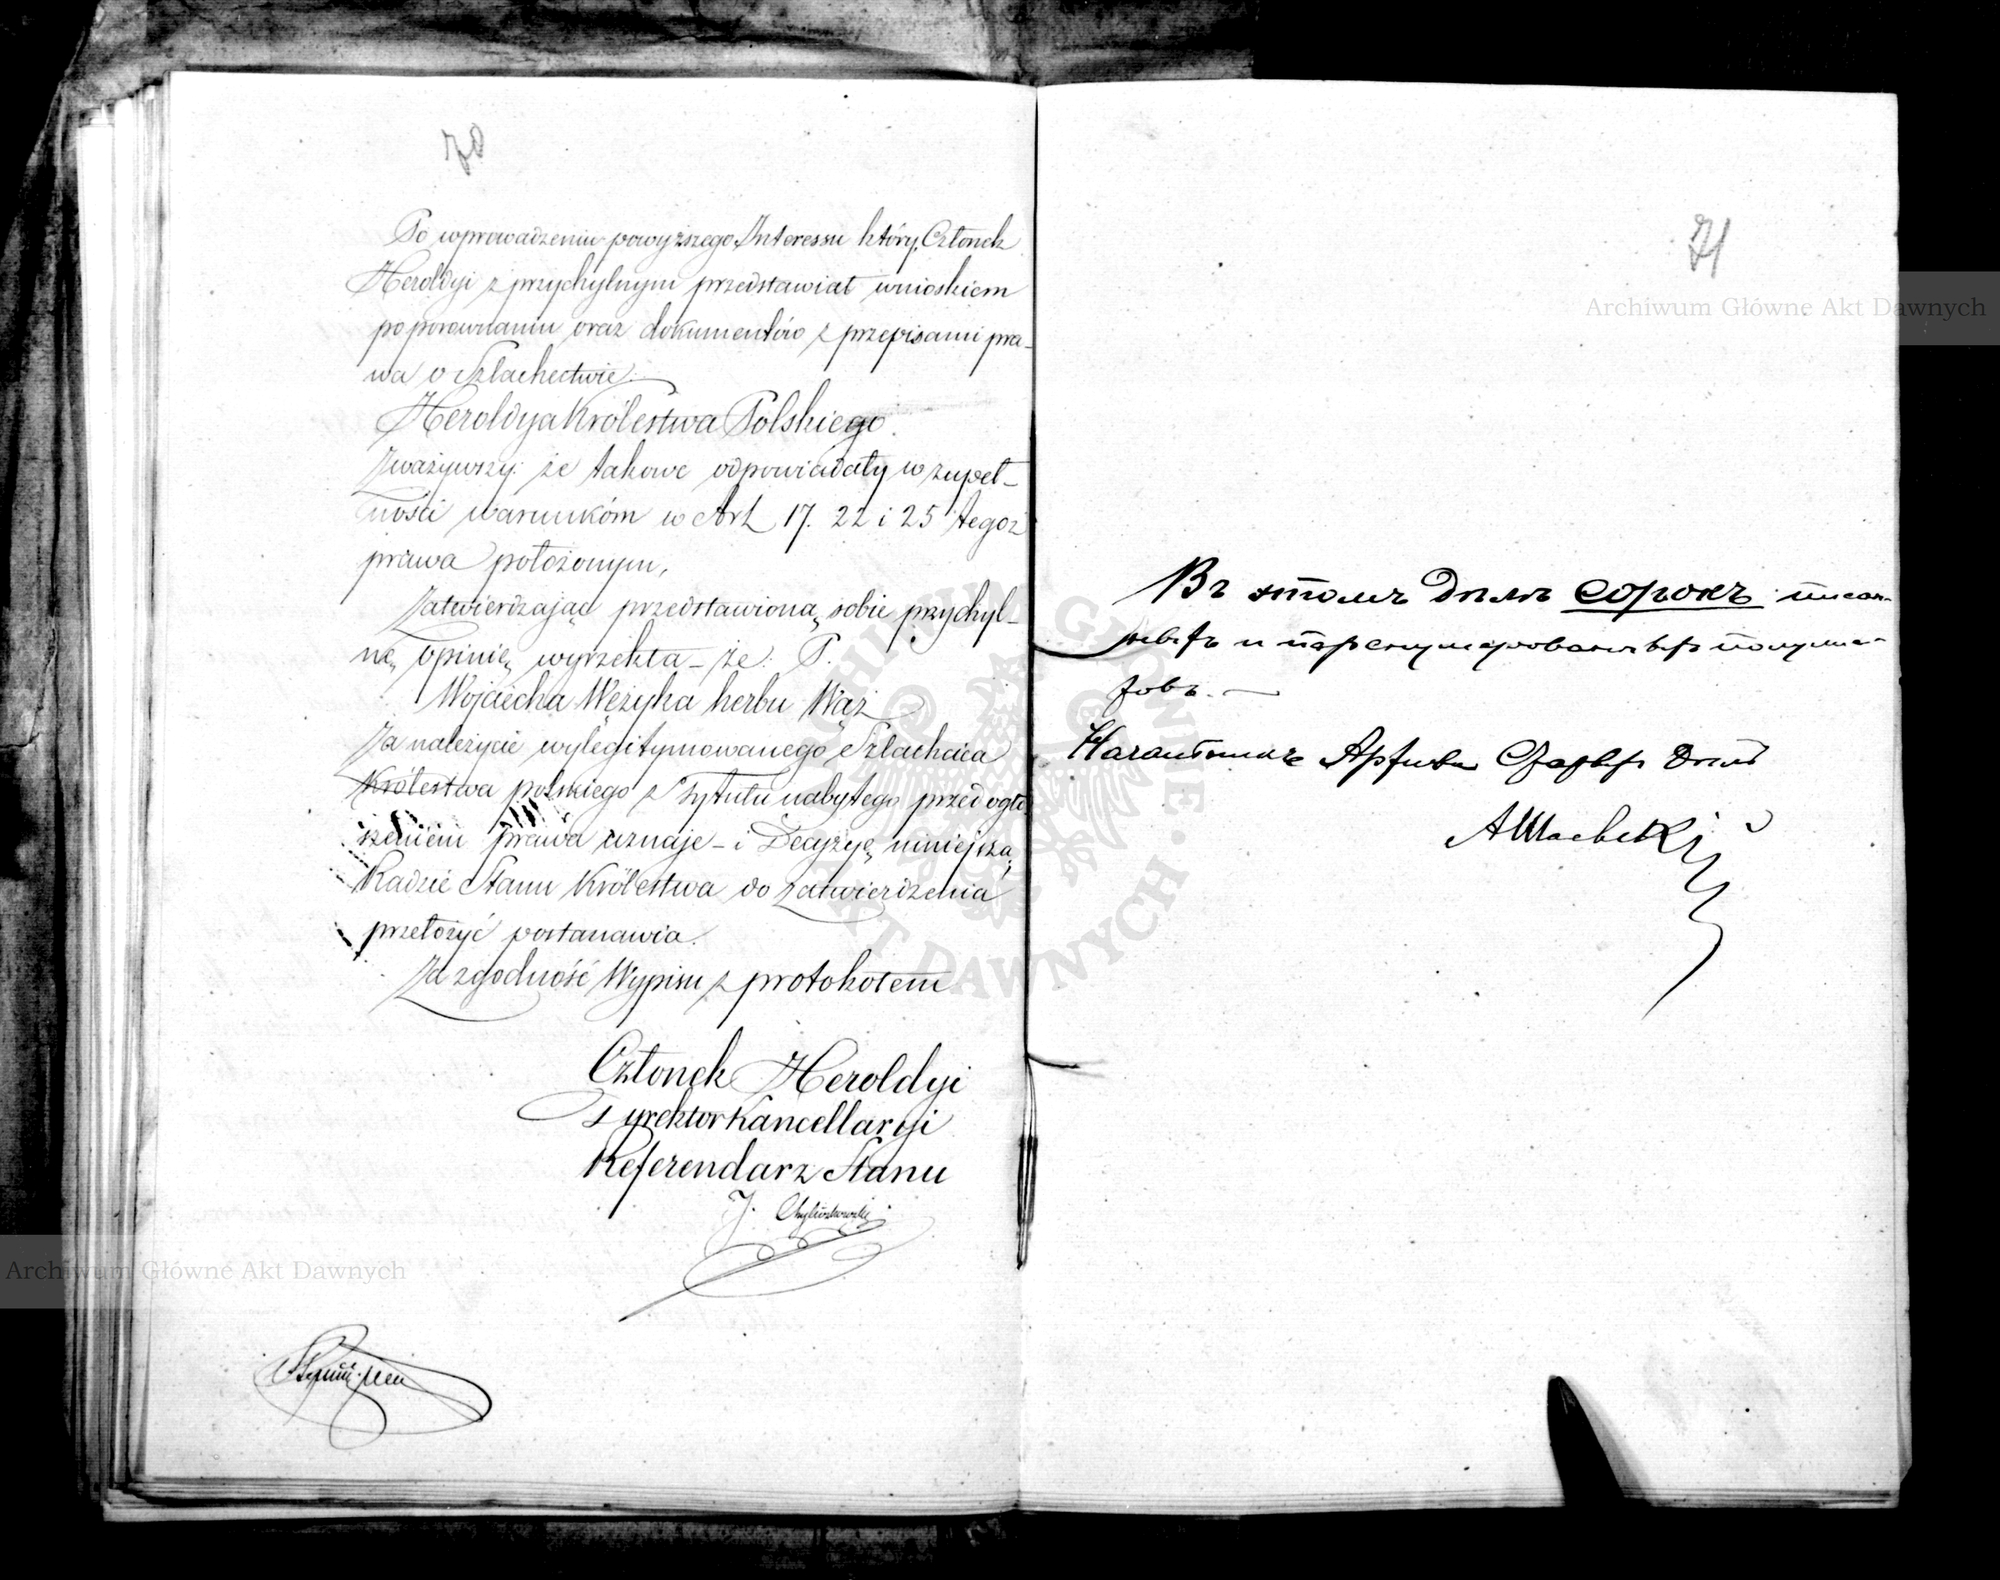 70
Po wprowadzeniu powyższego Interessu który Członek
Heroldyi z przychylnym przedstawiał wnioskiem
po porównaniu oraz dokumentów z przepisami pra-
wa o Szlachectwie.
Heroldya Królestwa Polskiego.
Zważywszy: że takowe odpowiadały w zupeł-
ności warunkóm w Art 17. 22 i 25 tegoż
prawa położonym,
Zatwierdzając przedstawioną sobie przychyl-
ną opinię, wyrzekła - że: P.
Wojciecha Wężyka herbu Wąż
Za należycie wylegitymowanego Szlachcica
Królestwa polskiego z Tytułu nabytego przed ogło-
szeniem prawa uznaje - i Decyzyę niniejszą
Radzie Stanu Królestwa do zatwierdzenia
przełożyć postanawia.
Za zgodność Wypisu z protokołem
Członek Heroldyi
Dyrektor Kancellaryi
Referendarz Stanu
J.
71
Въ этомъ дѣлѣ сорокъ писан-
ныхъ и перенумерованныхъ полулис-
товъ.
Начальникъ Архива Старыхъ Дѣлъ
Archiwum Główne Akt Dawnych
Archiwum Główne Akt Dawnych
ARCHIWUM GŁÓWNE AKT DAWNYCH